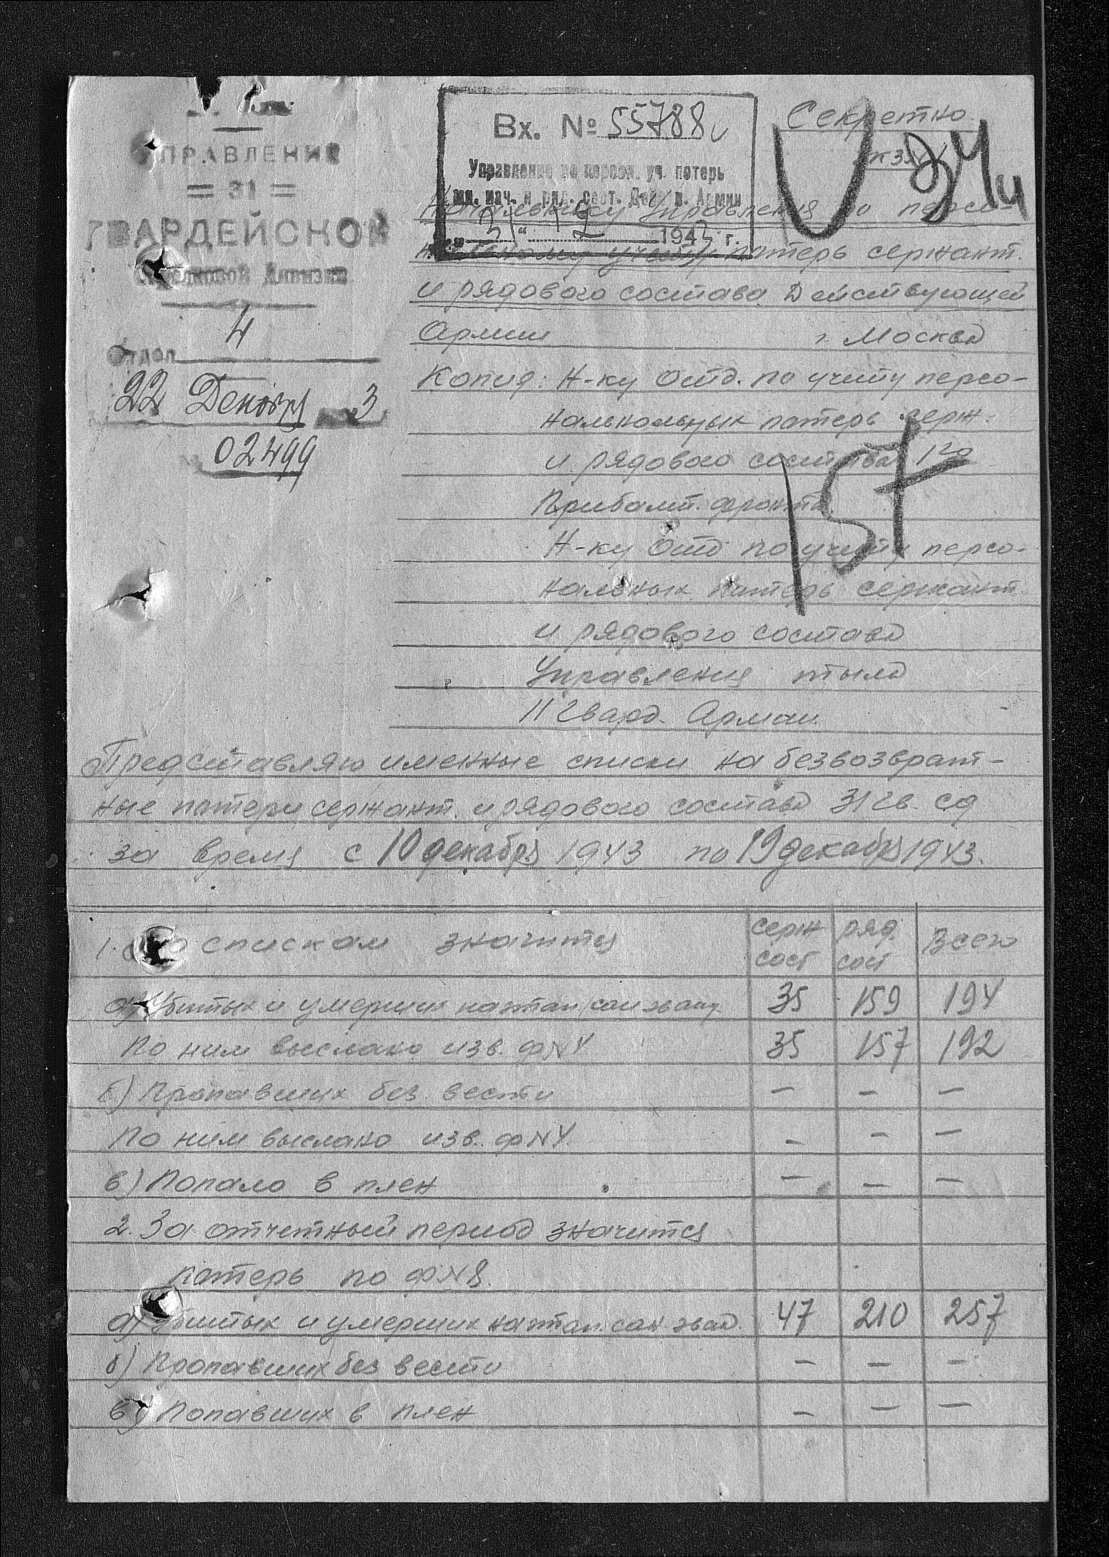 УПРАВЛЕНИЕ
= 31 =
ГВАРДЕЙСКОЙ
Стрелковой Дивизии
Отдел 4
22 Декабря 3
02499
Вх. № 55788
Управление по персон. уч. потерь
мл. нач. и ряд. сост. Действ. Армии
194 г.
Секретно
экз
Начальнику Управления по персо-
нальному учету потерь сержант.
и рядового состава Действующей
Армии г. Москва
Копия: Н-ку Отд. по учету персо-
нальных потерь серж.
и рядового состава 1го
Прибалт. фронта
Н-ку Отд по учету персо-
нальных потерь сержант.
и рядового состава
Управления тыла
11 гвард. Армии.
Представляю именные списки на безвозврат-
ные потери сержант. и рядового состава 31 гв. сд
за время с 10 декабря 1943 по 19 декабря 1943.
1. По спискам значится серж сост ряд. сост Всего
а) Убитых и умерших на этап. сан эвак. 35 159 194
По ним выслано изв. ф№4 35 157 192
б) Пропавших без вести — — —
По ним выслано изв. ф№4. — — —
в) Попало в плен — — —
2. За отчетный период значится
потерь по ф№8.
а) Убитых и умерших на этап. сан эвак. 47 210 257
б) Пропавших без вести — — —
в) Попавших в плен — — —